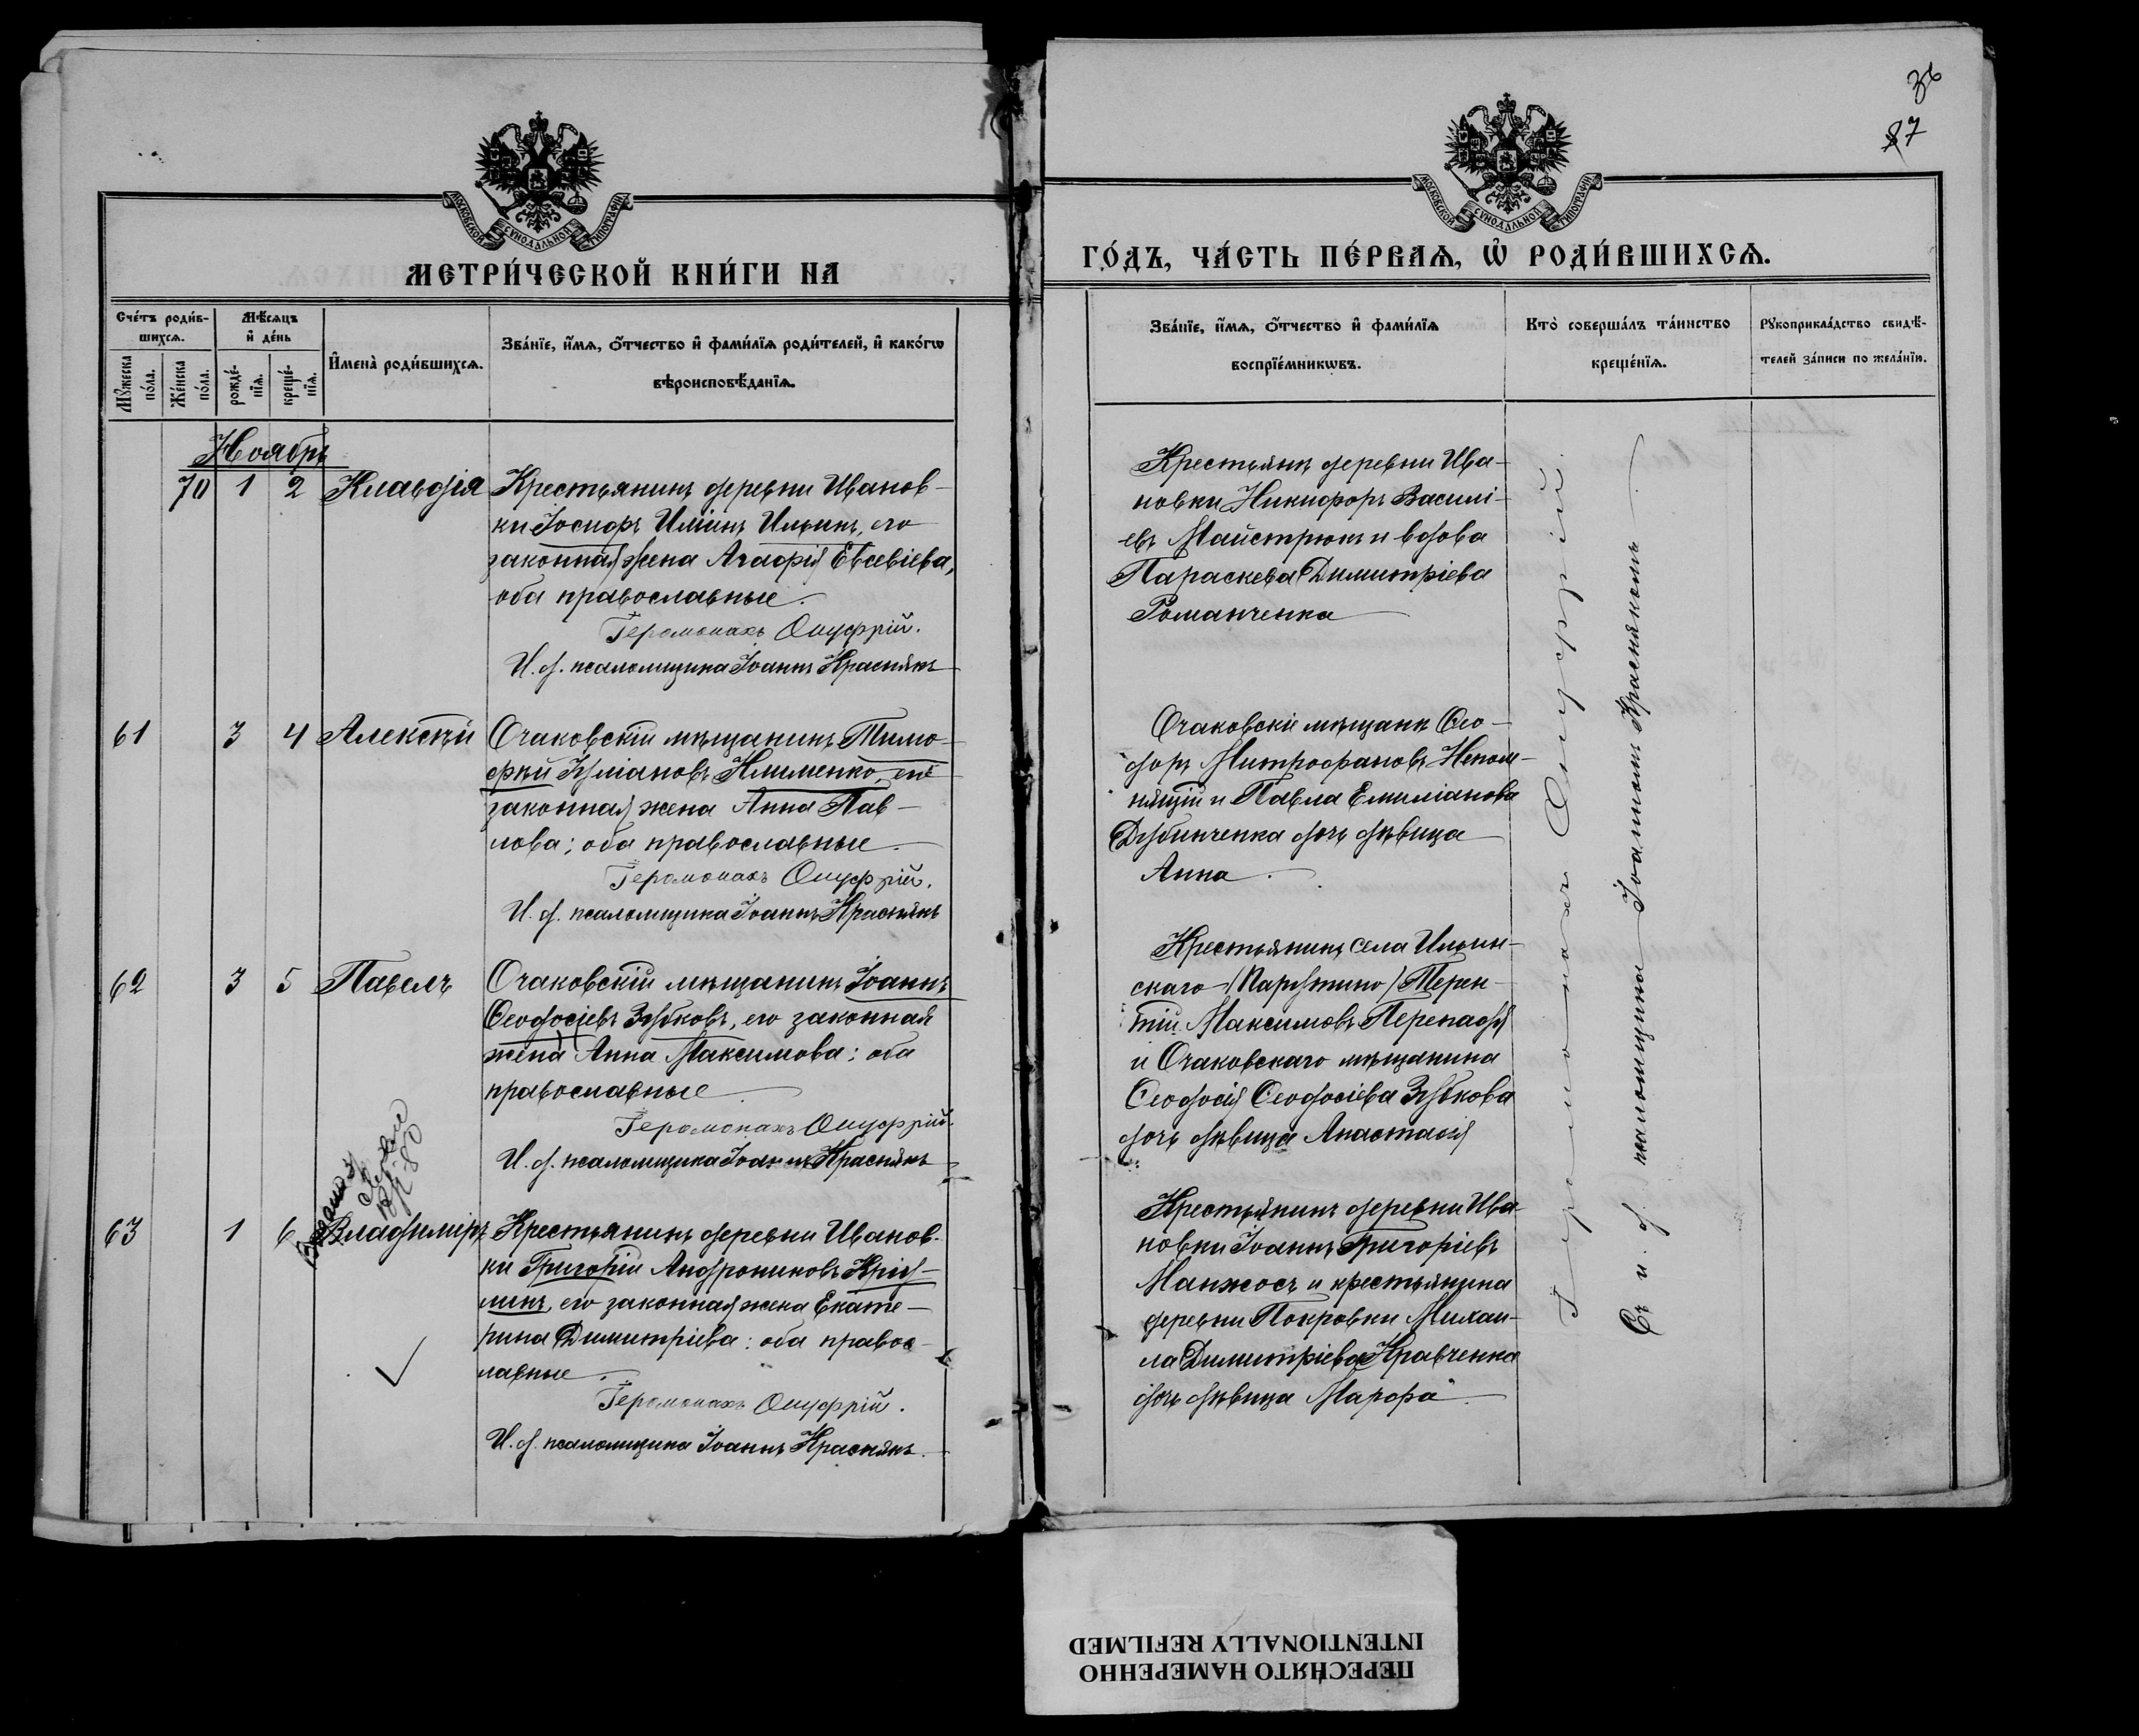 36
87
МОСКОВСКОЙ СѴНОДАЛЬНОЙ ТИПОГРАФІИ
МЕТРИ́ЧЕСКОЙ КНИ́ГИ НА
Сче́тъ роди́в-
шихсѧ.
Мѣ́сяцъ
и҆ де́нь
Мꙋ́жеска
по́ла.
Же́нска
по́ла.
рожде́-
нїѧ.
креще́-
нїѧ.
И҆мена̀ роди́вшихсѧ.
Зва́нїе, и҆́мѧ, ѻ҆́тчество и҆ фами́лїѧ роди́телей, и҆ како́гѡ
вѣроисповѣ́данїѧ.
Ноябрь
70 1 2 Клавдія Крестьянинъ деревни Иванов-
ки Іосифъ Ильинъ, его
законная жена Агафія Евсевіева,
оба православные.
Іеромонахъ Онуфрій.
И. д. псаломщика Іоаннъ Краснякъ
61 3 4 Алексѣй Очаковскій мѣщанинъ Тимо-
фей Клименко, его
законная жена Анна Пав-
лова; оба православные.
Іеромонахъ Онуфрій.
И. д. псаломщика Іоаннъ Краснякъ
62 3 5 Павелъ Очаковскій мѣщанинъ Іоаннъ
Ѳеодосіевъ Зубковъ, его законная
жена Анна Максимова; оба
православные.
Іеромонахъ Онуфрій.
И. д. псаломщика Іоаннъ Краснякъ
63 1 6 Владиміръ Крестьянинъ деревни Иванов-
ки Григорій Андрониковъ
его законная жена Екате-
рина Димитріева: оба правос-
лавные.
Іеромонахъ Онуфрій.
И. д. псаломщика Іоаннъ Краснякъ.
МОСКОВСКОЙ СѴНОДАЛЬНОЙ ТИПОГРАФІИ
ГО́ДЪ, ЧА́СТЬ ПЕ́РВАѦ, Ѡ҆ РОДИ́ВШИХСѦ.
Зва́нїе, и҆́мѧ, ѻ҆́тчество и҆ фами́лїѧ
воспрїе́мникѡвъ.
Кто̀ соверша́лъ та́инство
креще́нїѧ.
Рꙋкоприкла́дство свидѣ́-
телей за́писи по жела́нїю.
Крестьянъ деревни Ива-
новки Никифоръ Василі-
евъ Майстрюкъ и вдова
Параскева Димитріева
Романченка
Очаковскіе мѣщане Ѳео-
доръ Митрофановъ Непом-
нящій и Павла Емиліанова
Дубинченка дочь дѣвица
Анна.
Крестьянинъ села Ильин-
скаго (Парутино) Терен-
тій Максимовъ Перепадя
и Очаковскаго мѣщанина
Ѳеодосія Ѳеодосіева Зубкова
дочь дѣвица Анастасія
Крестьянинъ деревни Ива-
новки Іоаннъ Григоріевъ
Манжосъ и крестьянина
деревни Покровки Михаи-
ла Димитріева Кравченка
дочь дѣвица Марфа.
Іеромонахъ Онуфрій.
Съ и. д. псаломщика Іоанномъ Краснякомъ
ПЕРЕСНЯТО НАМЕРЕННО
INTENTIONALLY REFILMED